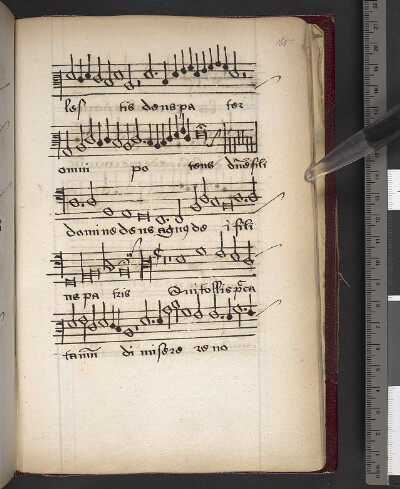 les tis deus pa ter
omni po tens dn̄e fili
domine deus agnus de i fili
us pa tris Qui tollis p̄cca
ta mūdi misere re no